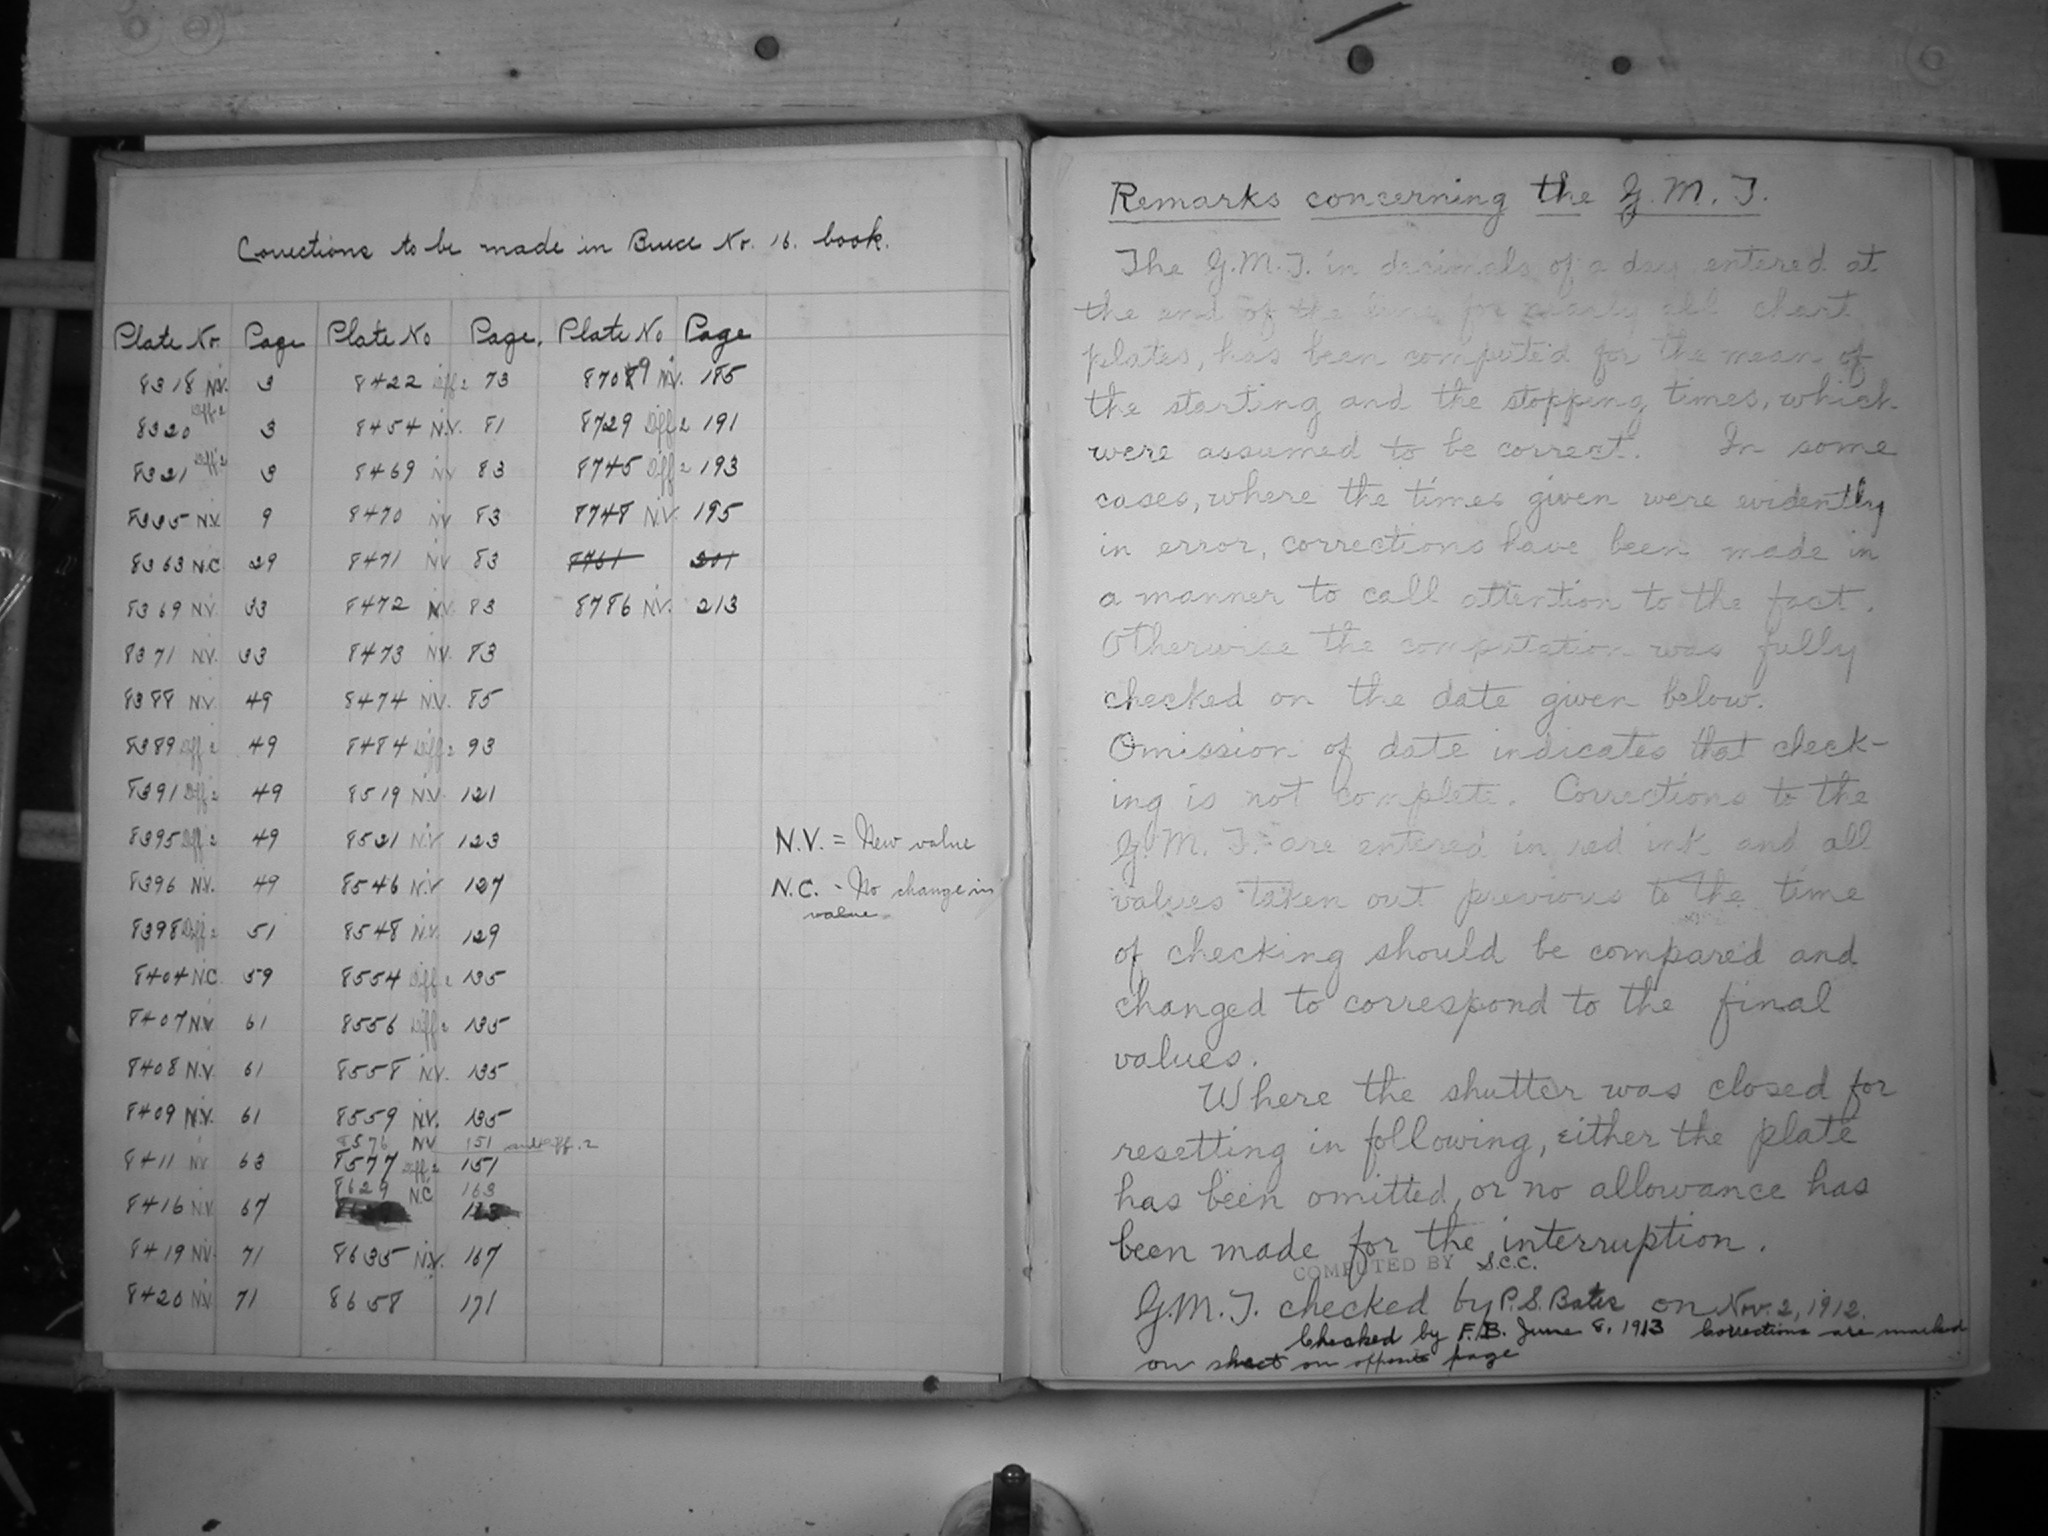 Corrections to be made in Bruce No. 16. book.
Plate No. Page Plate No Page. Plate No Page
8318 N.V. 3 8422 Diff 2 73 8709 N.V. 185
8320 Diff 2 3 8454 N.V. 81 8729 Diff 2 191
8321 Diff 2 3 8469 NV 83 8745 Diff 2 193
8335 N.V. 9 8470 NV 83 8748 N.V. 195
8363 N.C. 29 8471 NV 83 8761 201
8369 N.V. 33 8472 N.V. 83 8786 N.V. 213
8371 N.V. 33 8473 N.V. 83
8388 N.V. 49 8474 N.V. 85
8389 Diff 2 49 8484 Diff 2 93
8391 Diff 2 49 8519 N.V. 121
8395 Diff 2 49 8521 N.V. 123
8396 N.V. 49 8546 N.V. 127
8398 Diff 2 51 8548 N.V. 129
8404 N.C. 59 8554 Diff 2 135
8407 N.V. 61 8556 Diff 2 135
8408 N.V. 61 8558 N.V. 135
8409 N.V. 61 8559 N.V. 135
8576 NV 151 and diff. 2
8411 NV 63 8577 Diff 2 151
8629 N.C. 163
8416 N.V. 67
8419 N.V. 71 8635 N.V. 167
8420 N.V. 71 8658 171
N.V. = New value
N.C. - No change in
value
Remarks concerning the G.M.T.
The G.M.T. in decimals of a day entered at
the end of the line for nearly all chart
plates, has been computed for the mean of
the starting and the stopping times, which
were assumed to be correct. In some
cases, where the times given were evidently
in error, corrections have been made in
a manner to call attention to the fact.
Otherwise the computation was fully
checked on the date given below.
Omission of date indicates that check-
ing is not complete. Corrections to the
G.M.T. are entered in red ink and all
values taken out previous to the time
of checking should be compared and
changed to correspond to the final
values.
Where the shutter was closed for
resetting in following, either the plate
has been omitted, or no allowance has
been made for the interruption.
COMPUTED BY S.C.C.
G.M.T. checked by P.S. Bates on Nov. 2, 1912.
Checked by F.B. June 8, 1913 Corrections are marked
on sheet on opposite page